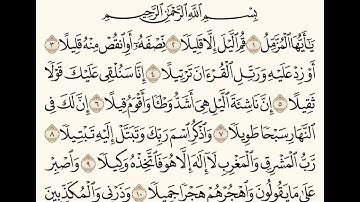 بِسْمِ اللَّهِ الرَّحْمَٰنِ الرَّحِيمِ
يَٰٓأَيُّهَا ٱلْمُزَّمِّلُ ١ قُمِ ٱلَّيْلَ إِلَّا قَلِيلًا ٢ نِّصْفَهُۥٓ أَوِ ٱنقُصْ مِنْهُ قَلِيلًا ٣
أَوْ زِدْ عَلَيْهِ وَرَتِّلِ ٱلْقُرْءَانَ تَرْتِيلًا ٤ إِنَّا سَنُلْقِى عَلَيْكَ قَوْلًا
ثَقِيلًا ٥ إِنَّ نَاشِئَةَ ٱلَّيْلِ هِىَ أَشَدُّ وَطْـًٔا وَأَقْوَمُ قِيلًا ٦ إِنَّ لَكَ فِى
ٱلنَّهَارِ سَبْحًا طَوِيلًا ٧ وَٱذْكُرِ ٱسْمَ رَبِّكَ وَتَبَتَّلْ إِلَيْهِ تَبْتِيلًا ٨
رَّبُّ ٱلْمَشْرِقِ وَٱلْمَغْرِبِ لَآ إِلَٰهَ إِلَّا هُوَ فَٱتَّخِذْهُ وَكِيلًا ٩ وَٱصْبِرْ
عَلَىٰ مَا يَقُولُونَ وَٱهْجُرْهُمْ هَجْرًا جَمِيلًا ١٠ وَذَرْنِى وَٱلْمُكَذِّبِينَ